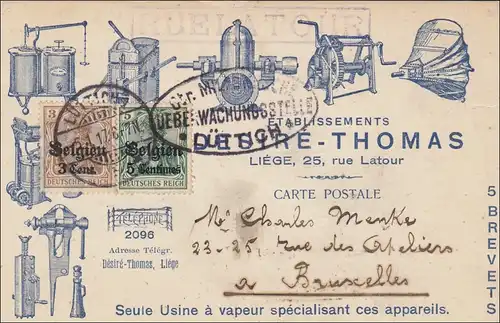 RUE LATOUR
ÜBERWACHUNGSSTELLE
LÜTTICH
ÉTABLISSEMENTS
DÉSIRÉ-THOMAS
LIÉGE, 25, rue Latour
3
Belgien
3 Cent.
DEUTSCHES REICH
5
Belgien
5 Centimes
DEUTSCHES REICH
CARTE POSTALE
TÉLÉPHONE
2096
Adresse Télégr.
Désiré-Thomas, Liége
Mr Charles Menke
23-25, rue des Ateliers
à Bruxelles
5 BREVETS
Seule Usine à vapeur spécialisant ces appareils.